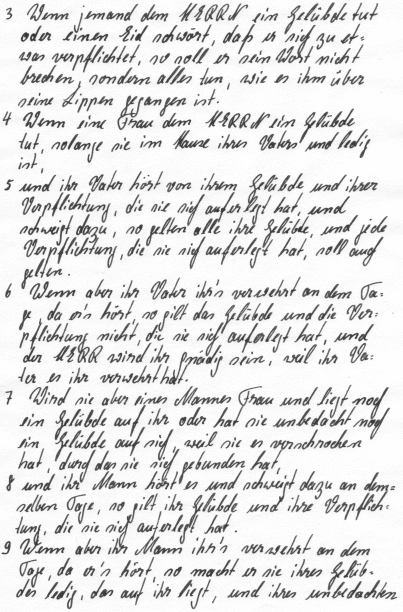 3 Wenn jemand dem HERRN ein Gelübde tut
oder einen Eid schwört, daß er sich zu et-
was verpflichtet, so soll er sein Wort nicht
brechen, sondern alles tun, wie es ihm über
seine Lippen gegangen ist.
4 Wenn eine Frau dem HERRN ein Gelübde
tut, solange sie im Hause ihres Vaters und ledig
ist,
5 und ihr Vater hört von ihrem Gelübde und ihrer
Verpflichtung, die sie sich auferlegt hat, und
schweigt dazu, so gelten alle ihre Gelübde, und jede
Verpflichtung, die sie sich auferlegt hat, soll auch
gelten.
6 Wenn aber ihr Vater ihr's verwehrt an dem Ta-
ge, da er's hört, so gilt das Gelübde und die Ver-
pflichtung nicht, die sie sich auferlegt hat, und
der HERR wird ihr gnädig sein, weil ihr Va-
ter es ihr verwehrt hat.
7 Wird sie aber eines Mannes Frau und liegt noch
ein Gelübde auf ihr oder hat sie unbedacht noch
ein Gelübde auf sich, weil sie es versprochen
hat, durch das sie sich gebunden hat,
8 und ihr Mann hört es und schweigt dazu an dem=
selben Tage, so gilt ihr Gelübde und ihre Verpflich-
tung, die sie sich auferlegt hat.
9 Wenn aber ihr Mann ihr's verwehrt an dem
Tage, da er's hört, so macht er sie ihres Gelüb-
des ledig, das auf ihr liegt, und ihres unbedachten